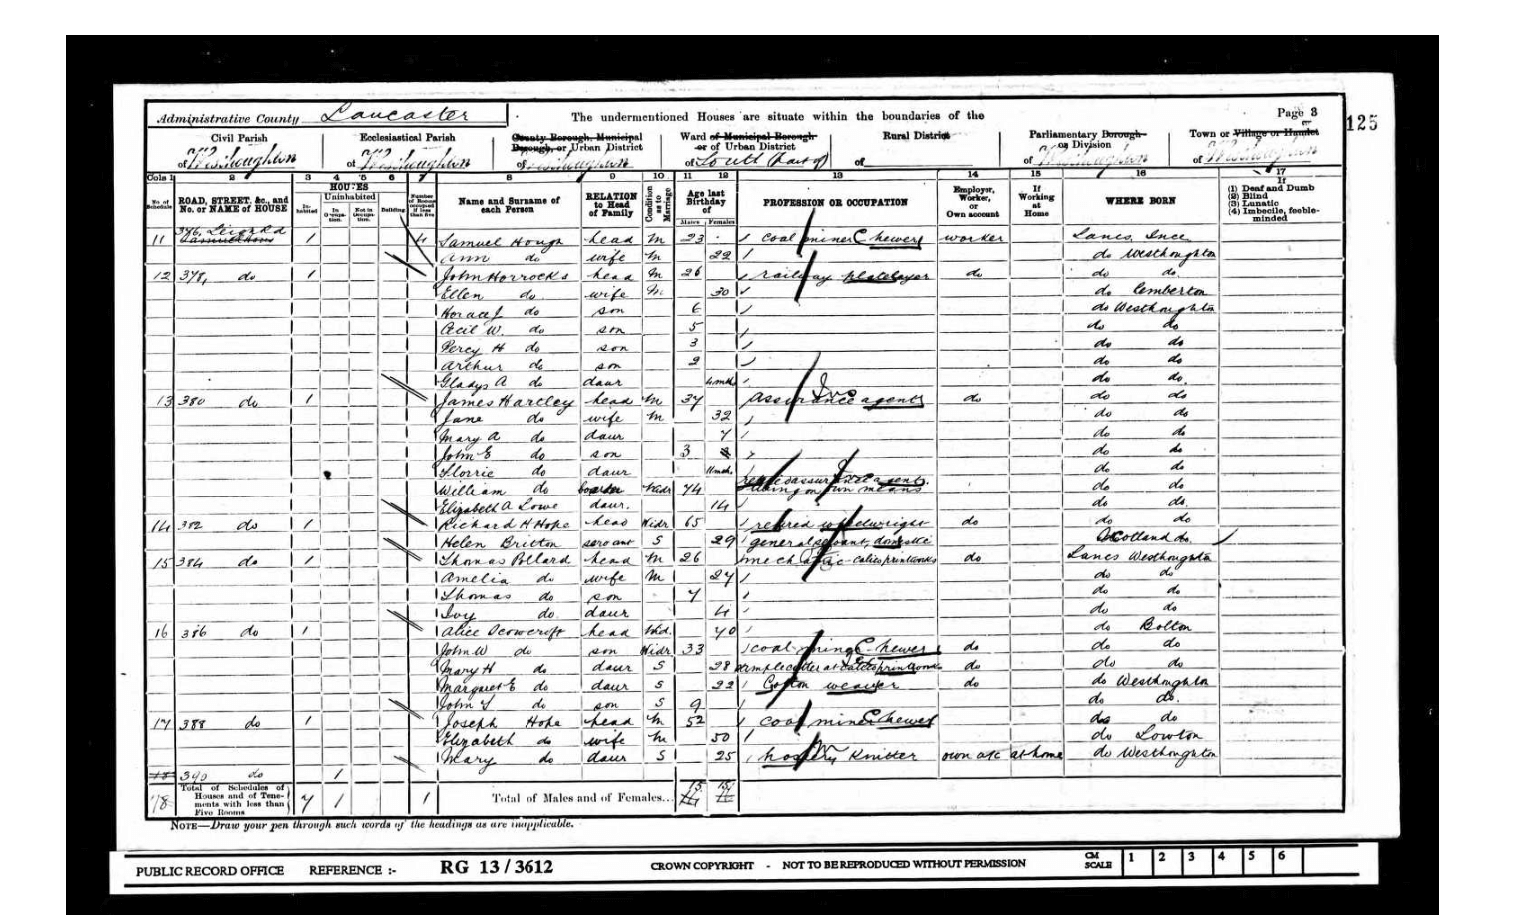 Administrative County Lancaster The undermentioned Houses are situate within the boundaries of the Page 3
125
Civil Parish Ecclesiastical Parish County Borough, Municipal Borough, or Urban District Ward of Municipal Borough or of Urban District Rural District Parliamentary Borough or Division Town or Village or Hamlet
of Westhoughton of Westhoughton of Westhoughton of South (Part of) of of Westhoughton of Westhoughton
Cols 1 2 3 4 5 6 7 8 9 10 11 12 13 14 15 16 17
No. of Schedule ROAD, STREET, &c., and No. or NAME of HOUSE HOUSES Inhabited Uninhabited In Occupation. Not in Occupation. Building Number of Rooms occupied if less than five Name and Surname of each Person RELATION to Head of Family Condition as to Marriage Age last Birthday of Males Females PROFESSION OR OCCUPATION Employer, Worker, or Own account If Working at Home WHERE BORN If (1) Deaf and Dumb (2) Blind (3) Lunatic (4) Imbecile, feeble-minded
11 376, Leigh Rd 1 4 Samuel Hough head M 23 coal miner hewer worker Lancs Ince
Ann do wife M 22 do Westhoughton
12 378, do 1 John Horrocks head M 26 railway platelayer do do do
Ellen do wife M 30 do Pemberton
Horace J do son 6 do Westhoughton
Cecil W. do son 5 do do
Percy H do son 3 do do
Arthur do son 2 do do
Gladys A do daur 4 mths do do.
13 380 do 1 James Hartley head M 37 assurance agent do do do
Jane do wife M 32 do do
Mary A do daur 7 do do
John E do son 3 do do
Florrie do daur 11 mths do do
William do boarder Widr 74 retired assurance agent living on own means do do
Elizabeth A Lowe daur. 14 do do.
14 382 do 1 Richard H Hope head Widr 65 retired wheelwright do do do
Helen Britton servant S 29 general servant, domestic Scotland do.
15 384 do 1 Thomas Pollard head M 26 mechanic - calico printworks do Lancs Westhoughton
Amelia do wife M 27 do do
Thomas do son 7 do do
Ivy do daur 4 do do
16 386 do 1 Alice Scowcroft head Wid. 70 do Bolton
John W do son Widr 33 coal mining hewer do do do
Mary H do daur S 28 at calico printworks do do do
Margaret E do daur S 22 Cotton weaver do do Westhoughton
John do son S 9 do do.
17 388 do 1 Joseph Hope head M 52 coal miner hewer do do
Elizabeth do wife M 50 do Lowton
Mary do daur S 25 hosiery Knitter own a/c at home do Westhoughton
18 390 do 1
18 Total of Schedules of Houses and of Tenements with less than Five Rooms 7 1 1 Total of Males and of Females... 15 15
NOTE—Draw your pen through such words of the headings as are inapplicable.
PUBLIC RECORD OFFICE REFERENCE :- RG 13 / 3612 CROWN COPYRIGHT - NOT TO BE REPRODUCED WITHOUT PERMISSION CM SCALE 1 2 3 4 5 6